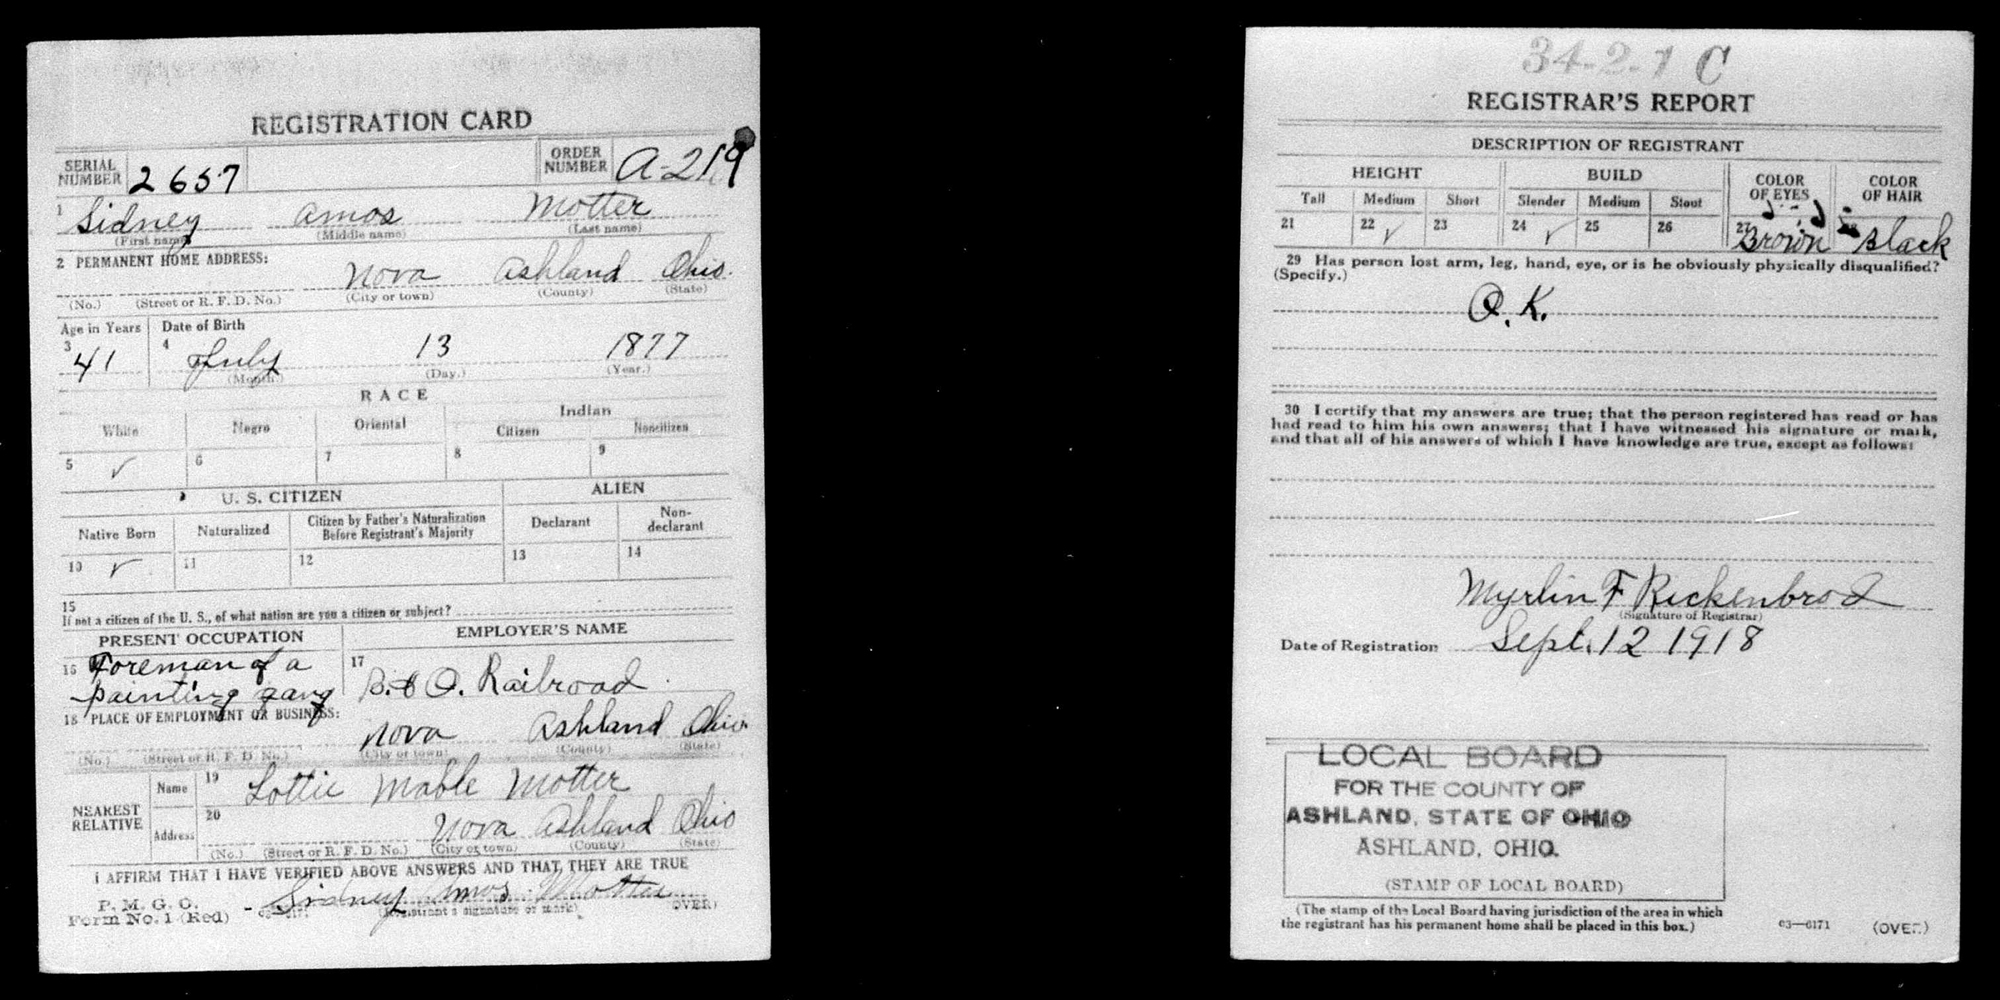 REGISTRATION CARD
SERIAL NUMBER 2657 ORDER NUMBER A-219
1 Sidney Amos Motter
(First name) (Middle name) (Last name)
2 PERMANENT HOME ADDRESS:
Nova Ashland Ohio.
(No.) (Street or R. F. D. No.) (City or town) (County) (State)
Age in Years Date of Birth
3 41 4 July 13 1877
(Month.) (Day.) (Year.)
RACE
White Negro Oriental Indian
Citizen Noncitizen
5 ✓ 6 7 8 9
U. S. CITIZEN ALIEN
Native Born Naturalized Citizen by Father's Naturalization Before Registrant's Majority Declarant Non-declarant
10 ✓ 11 12 13 14
15
If not a citizen of the U. S., of what nation are you a citizen or subject?
PRESENT OCCUPATION EMPLOYER'S NAME
16 Foreman of a 17
painting gang B. & O. Railroad
18 PLACE OF EMPLOYMENT OR BUSINESS:
Nova Ashland Ohio
(No.) (Street or R. F. D. No.) (City or town) (County) (State)
NEAREST RELATIVE
Name 19 Lottie Mable Motter
Address 20 Nova Ashland Ohio
(No.) (Street or R. F. D. No.) (City or town) (County) (State)
I AFFIRM THAT I HAVE VERIFIED ABOVE ANSWERS AND THAT THEY ARE TRUE
P. M. G. O.
Form No. 1 (Red) 03—6171 Sidney Amos Motter
(Registrant's signature or mark) (OVER)
34-2-1 C
REGISTRAR'S REPORT
DESCRIPTION OF REGISTRANT
HEIGHT BUILD COLOR OF EYES COLOR OF HAIR
Tall Medium Short Slender Medium Stout
21 22 ✓ 23 24 ✓ 25 26 27 Brown 28 Black
29 Has person lost arm, leg, hand, eye, or is he obviously physically disqualified?
(Specify.)
O. K.
30 I certify that my answers are true; that the person registered has read or has
had read to him his own answers; that I have witnessed his signature or mark,
and that all of his answers of which I have knowledge are true, except as follows:
Myrlin F Rickenbrod
(Signature of Registrar)
Date of Registration Sept. 12 1918
LOCAL BOARD
FOR THE COUNTY OF
ASHLAND, STATE OF OHIO
ASHLAND, OHIO.
(STAMP OF LOCAL BOARD)
(The stamp of the Local Board having jurisdiction of the area in which
the registrant has his permanent home shall be placed in this box.)
03—6171 (OVER)